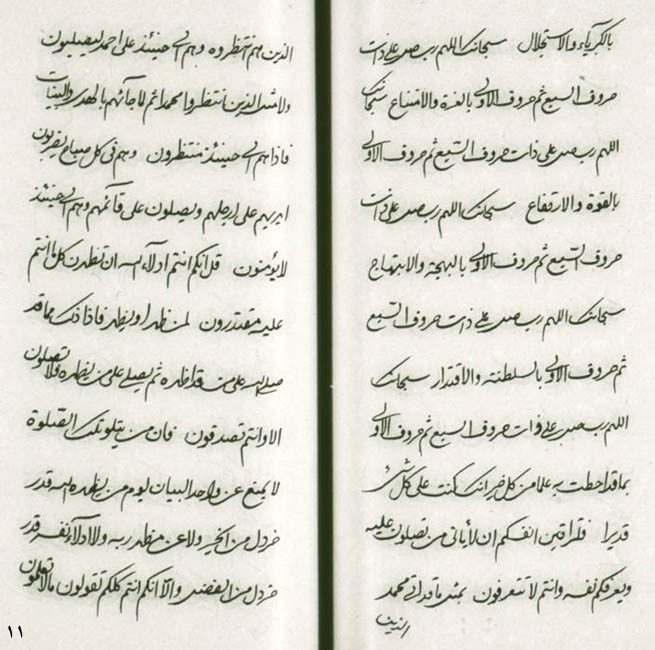 بالكبرياء والاستجلال سبحانك اللهم رب صل على ذات
حروف السبع ثم حروف الاولى بالعزة والامتناع سبحانك
اللهم رب صل على ذات حروف السبع ثم حروف الاولى
بالقوة والارتفاع سبحانك اللهم رب صل على ذات
حروف السبع ثم حروف الاولى بالبهجة والابتهاج
سبحانك اللهم رب صل على ذات حروف السبع
ثم حروف الاولى بالسلطنة والاقتدار سبحانك
اللهم رب صل على ذات حروف السبع ثم حروف الاولى
بما قد احطت به علما من كل خير انك كنت على كل شئ
قديرا فلتراقبن انفسكم ان لا ياتى من تصلون عليه
ويعرفكم نفسه وانتم لا تتعرفون بمثل ما قد اتى محمد
الذين
الذين هم منتظروه وهم الى حينئذ على احمد ليصليون
ولا مثل الذين انتظروا محمدا ثم لما جائهم بالهدى والبينات
فاذا هم الى حينئذ منتظرون وهم فى كل صباح ليضربون
ايديهم على ارجلهم ويصلون على قائمهم وهم الى حينئذ
لا يؤمنون قل انكم انتم ادلاء الله ان تظهرن كل ما انتم
عليه مقتدرون لمن ظهر او يظهر فاذا ذلك مما قد
صلى الله على من قد اظهره ثم يصلى على من يظهره ولا تصلون
الا وانتم تصدقون فان من يتلو تلك الصلوة
لا يمنع عن واحد البيان ليوم من يظهره الله قدر
خردل من الخير ولا عن مظهر ربه ولا ادلاء نفسه قدر
خردل من الفضل والا انكم انتم كلكم تقولون ما لا تعلمون
١١